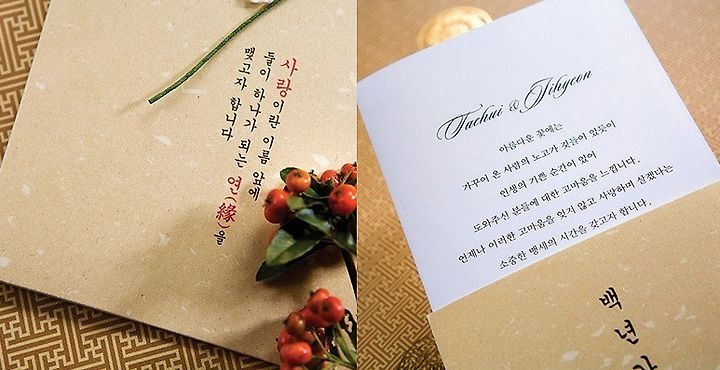 사랑이란 이름 앞에
둘이 하나가 되는 연(緣)을
맺고자 합니다
Taehui & Jihyeon
아름다운 꽃에는
가꾸어 온 사람의 노고가 깃들어 있듯이
인생의 기쁜 순간이 있어
도와주신 분들에 대한 고마움을 느낍니다.
언제나 이러한 고마움을 잊지 않고 사랑하며 살겠다는
소중한 맹세의 시간을 갖고자 합니다.
백년